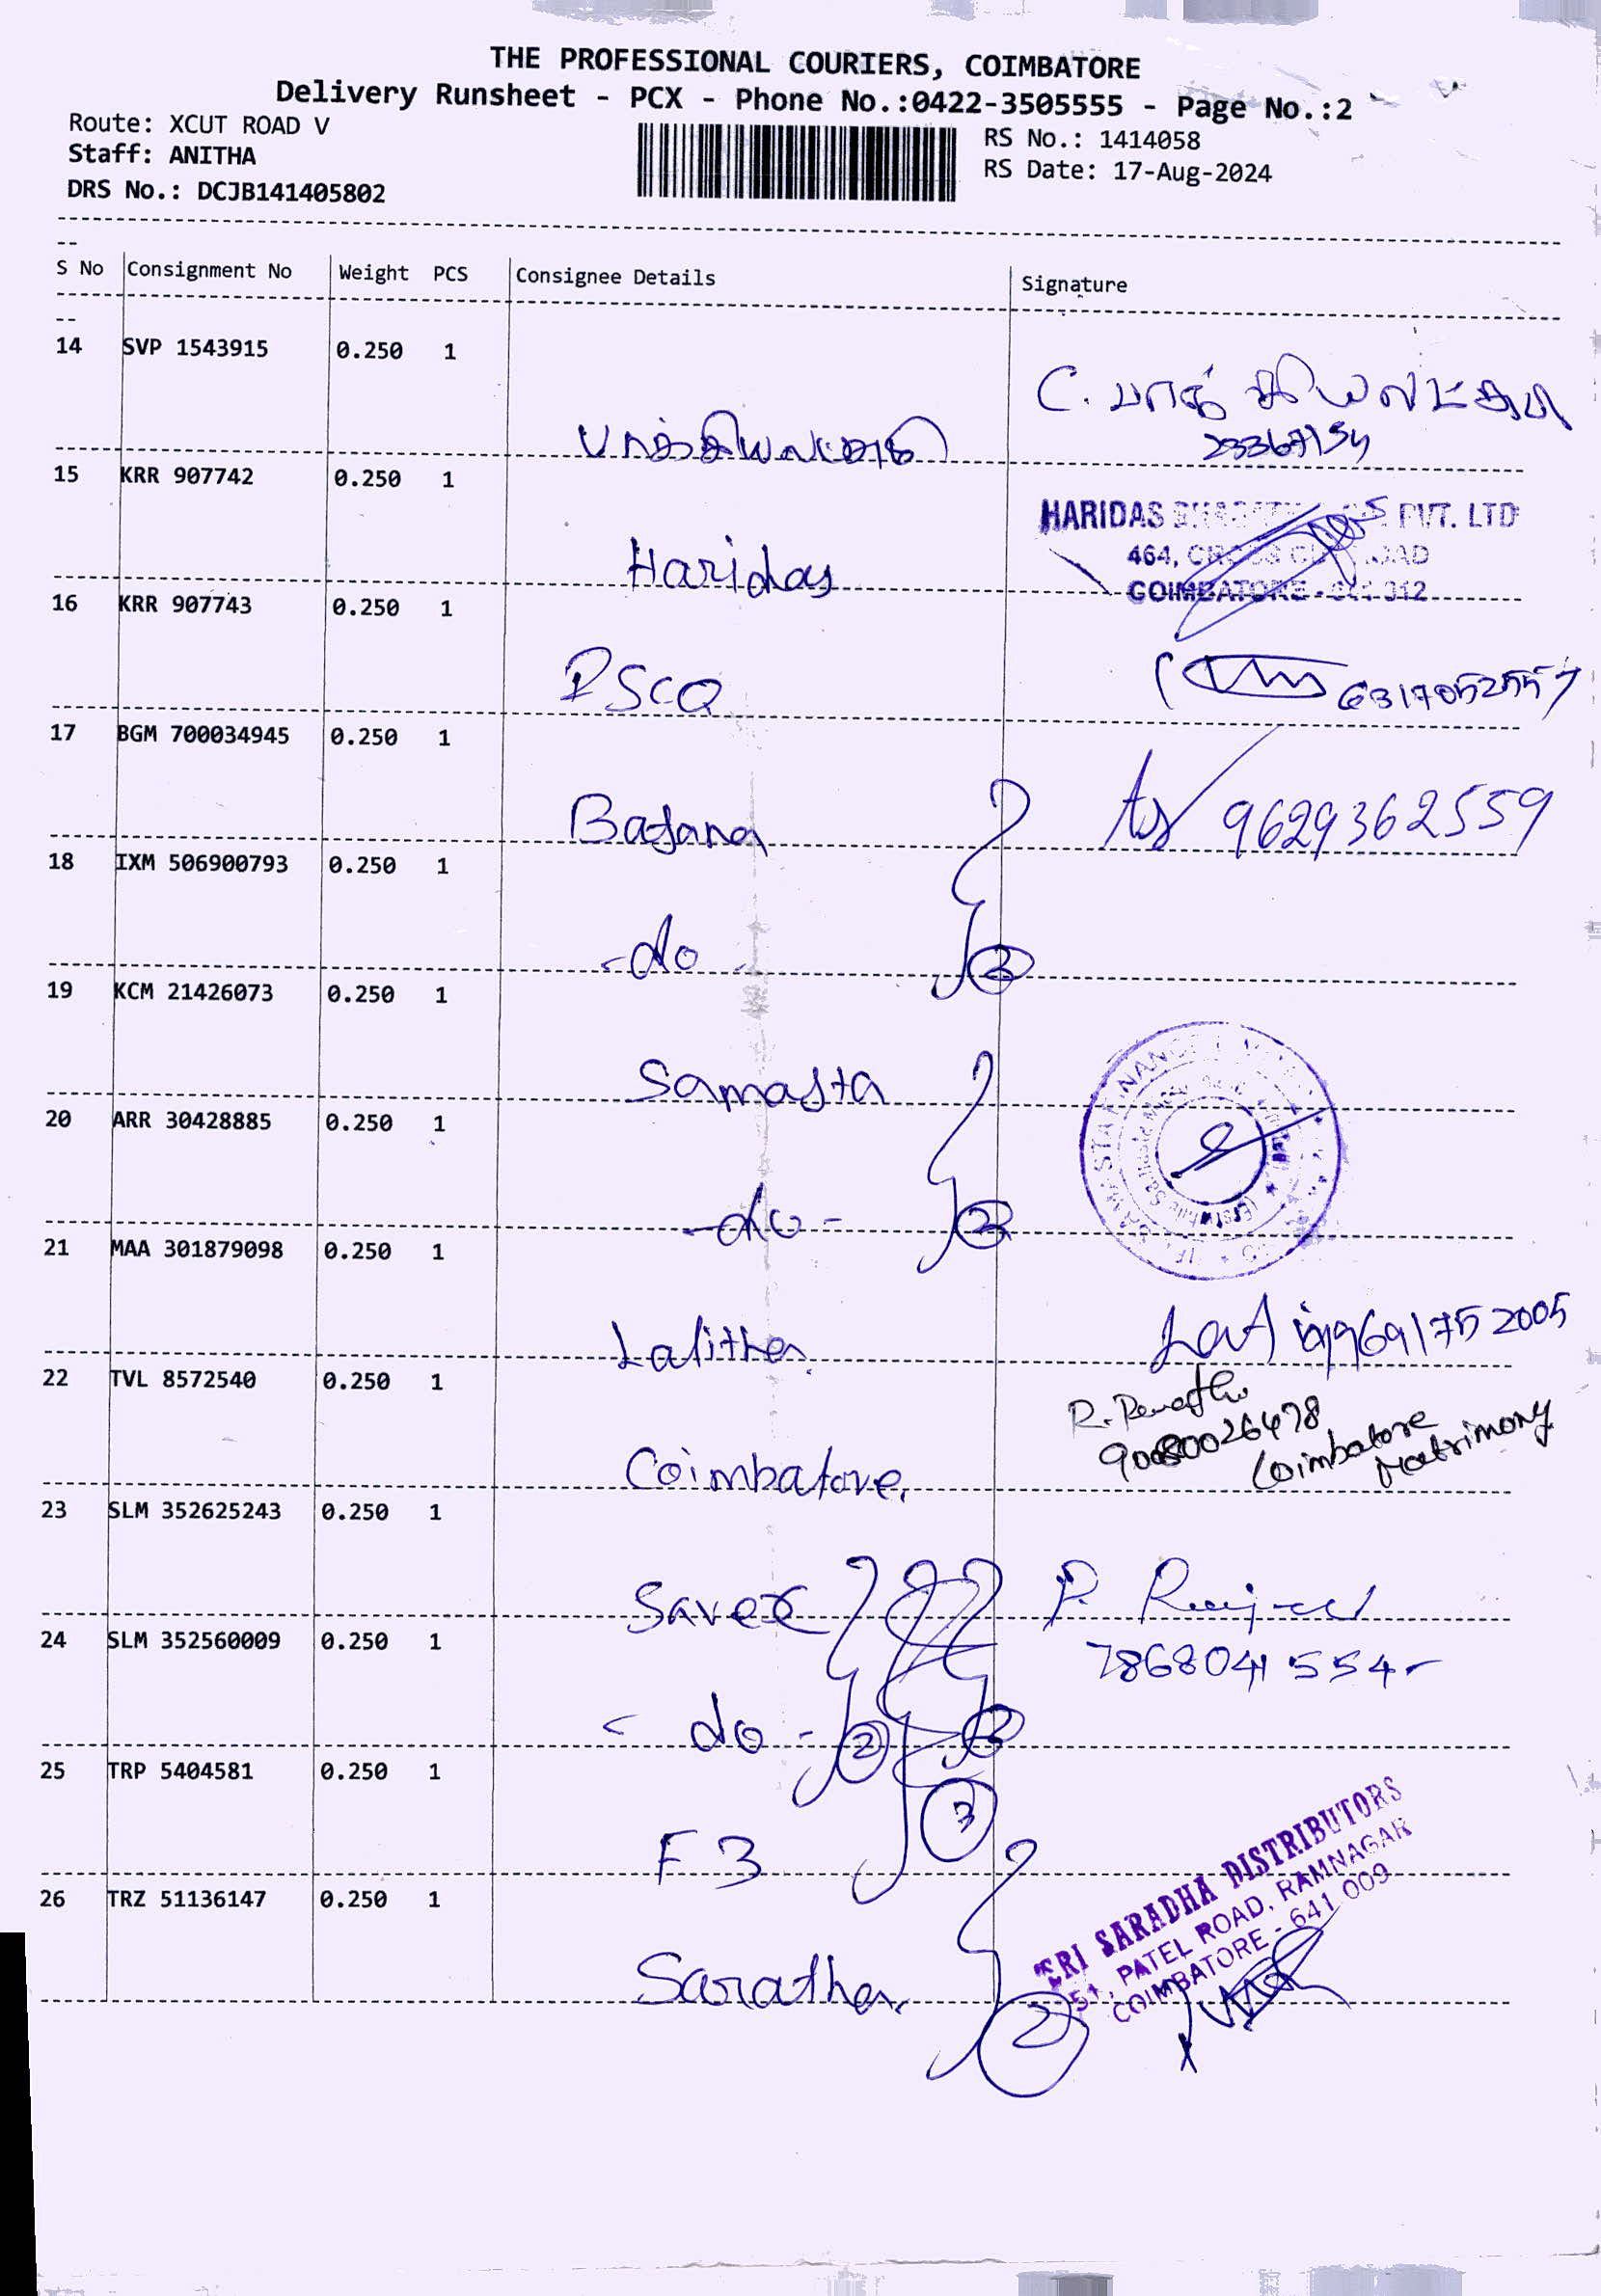 THE PROFESSIONAL COURIERS, COIMBATORE
Delivery Runsheet - PCX - Phone No.:0422-3505555 - Page No.:2
Route: XCUT ROAD V
RS No.: 1414058
Staff: ANITHA
RS Date: 17-Aug-2024
DRS No.: DCJB141405802
S No Consignment No Weight PCS Consignee Details Signature
14 SVP 1543915 0.250 1
C.
15 KRR 907742 0.250 1
Haridas
HARIDAS PVT. LTD
464,
COIMBATORE
16 KRR 907743 0.250 1
17 BGM 700034945 0.250 1
9629362559
18 IXM 506900793 0.250 1
-do-
2
19 KCM 21426073 0.250 1
Samasta
20 ARR 30428885 0.250 1
-do-
2
21 MAA 301879098 0.250 1
Lalitha
22 TVL 8572540 0.250 1
Coimbatore
Coimbatore
Matrimony
23 SLM 352625243 0.250 1
Savex
P.
24 SLM 352560009 0.250 1
7868041554
- do -
2
25 TRP 5404581 0.250 1
3
F3
26 TRZ 51136147 0.250 1
Saratha
2
SRI SARADHA DISTRIBUTORS
51, PATEL ROAD, RAMNAGAR
COIMBATORE - 641 009